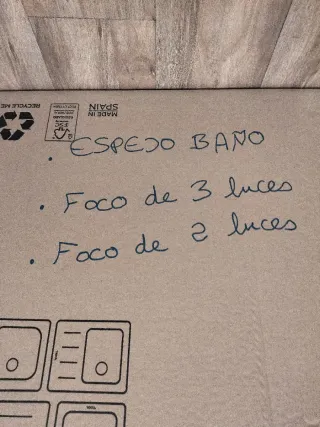 RECYCLE ME
MADE IN
SPAIN
. ESPEJO BAÑO
. Foco de 3 luces
. Foco de 2 luces